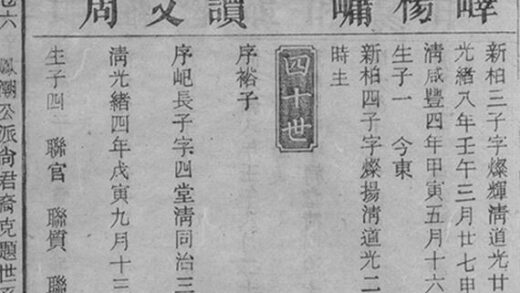 嶧楊嘯讀文周
新柏三子字燦輝清道光廿
光緒八年壬午三月廿七申
清咸豐四年甲寅五月十六
生子一 今東
新柏四子字燦揚清道光二
時生
四十世
序裕子
序屺長子字四堂清同治三
清光緒四年戊寅九月十三
生子四 聯官 聯質 聯
六 鳳潮公派尚君裔克題世